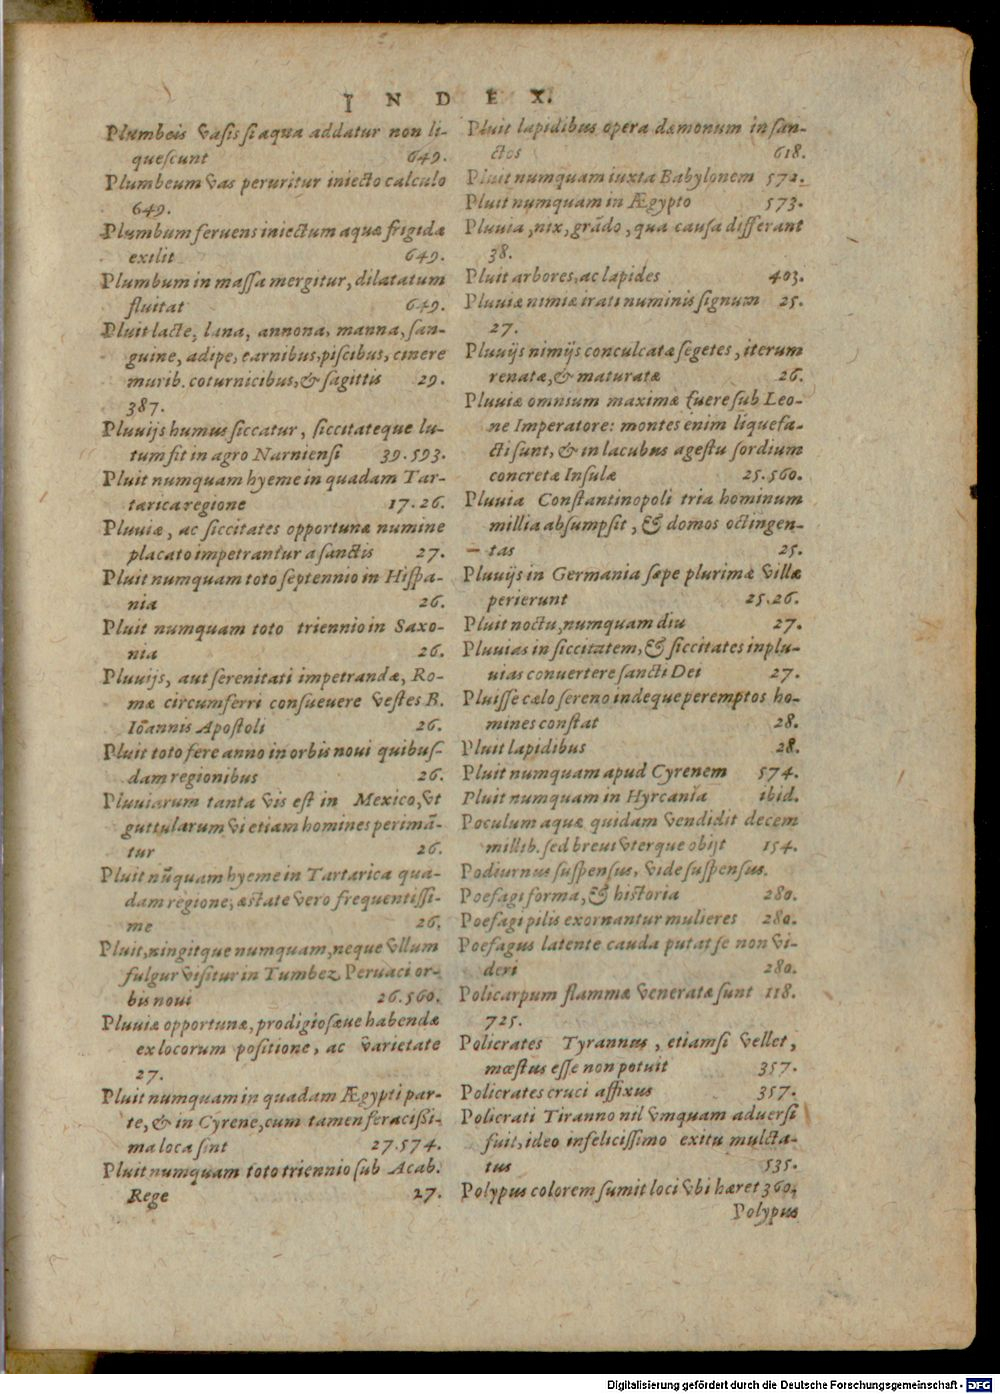 INDEX.
Plumbeis vasis si aqua addatur non li-
quescunt 649.
Plumbeum vas peruritur iniecto calculo
649.
Plumbum feruens iniectum aquæ frigidæ
exilit 649.
Plumbum in massa mergitur, dilatatum
fluitat 649.
Pluit lacte, lana, annona, manna, san-
guine, adipe, carnibus, piscibus, cinere
murib. coturnicibus, & sagittis 29.
387.
Pluuijs humus siccatur, siccitateque lu-
tum fit in agro Narniensi 39.593.
Pluit numquam hyeme in quadam Tar-
tarica regione 17.26.
Pluuiæ, ac siccitates opportunæ numine
placato impetrantur a sanctis 27.
Pluit numquam toto septennio in Hispa-
nia 26.
Pluit numquam toto triennio in Saxo-
nia 26.
Pluuijs, aut serenitati impetrandæ, Ro-
mæ circumferri consueuere vestes B.
Ioannis Apostoli 26.
Pluit toto fere anno in orbis noui quibus-
dam regionibus 26.
Pluuiarum tanta vis est in Mexico, vt
guttularum vi etiam homines perimā-
tur 26.
Pluit nūquam hyeme in Tartarica qua-
dam regione, æstate vero frequentissi-
me 26.
Pluit, ningitque numquam, neque vllum
fulgur visitur in Tumbez Peruaci or-
bis noui 26.560.
Pluuiæ opportunæ, prodigiosæue habendæ
ex locorum positione, ac varietate
27.
Pluit numquam in quadam Ægypti par-
te, & in Cyrene, cum tamen feracißi-
ma loca sint 27.574.
Pluit numquam toto triennio sub Acab.
Rege 27.
Pluit lapidibus opera dæmonum in san-
ctos 618.
Pluit numquam iuxta Babylonem 572.
Pluit numquam in Ægypto 573.
Pluuia, nix, grādo, qua causa differant
38.
Pluit arbores, ac lapides 403.
Pluuiæ nimiæ irati numinis signum 25.
27.
Pluuijs nimijs conculcatæ segetes, iterum
renatæ, & maturatæ 26.
Pluuiæ omnium maximæ fuere sub Leo-
ne Imperatore: montes enim liquefa-
cti sunt, & in lacubus agestu sordium
concretæ Insulæ 25.560.
Pluuia Constantinopoli tria hominum
millia absumpsit, & domos octingen-
tas 25.
Pluuijs in Germania sæpe plurimæ villæ
perierunt 25.26.
Pluit noctu, numquam diu 27.
Pluuias in siccitatem, & siccitates in plu-
uias conuertere sancti Dei 27.
Pluisse cælo sereno indeque peremptos ho-
mines constat 28.
Pluit lapidibus 28.
Pluit numquam apud Cyrenem 574.
Pluit numquam in Hyrcania ibid.
Poculum aquæ quidam vendidit decem
millib. sed breui vterque obijt 154.
Podiurnus suspensus, vide suspensus.
Poefagi forma, & historia 280.
Poefagi pilis exornantur mulieres 280.
Poefagus latente cauda putat se non vi-
deri 280.
Policarpum flammæ veneratæ sunt 118.
725.
Policrates Tyrannus, etiamsi vellet,
mœstus esse non potuit 357.
Policrates cruci affixus 357.
Policrati Tiranno nil vmquam aduersi
fuit, ideo infelicissimo exitu mulcta-
tus 535.
Polypus colorem sumit loci vbi hæret 360.
Polypus
Digitalisierung gefördert durch die Deutsche Forschungsgemeinschaft - DFG